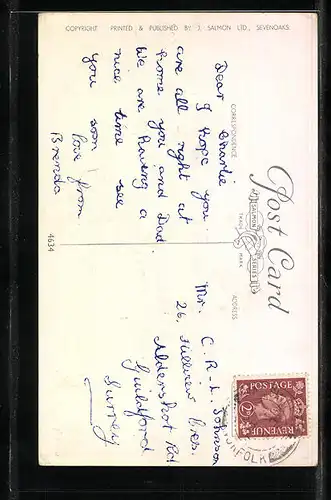 COPYRIGHT PRINTED & PUBLISHED BY J. SALMON LTD., SEVENOAKS.
Post Card
SALMON SERIES
TRADE MARK
CORRESPONDENCE
ADDRESS
Dear Charlie
I hope you
are all right at
home you and Dad.
We are having a
nice time see
you soon
love from
Brenda
4634
Mr. C. R. L. Johnson
26, Hillview Cres.
Aldershot Rd
Guildford
Surrey
POSTAGE
2D
REVENUE
NORFOLK